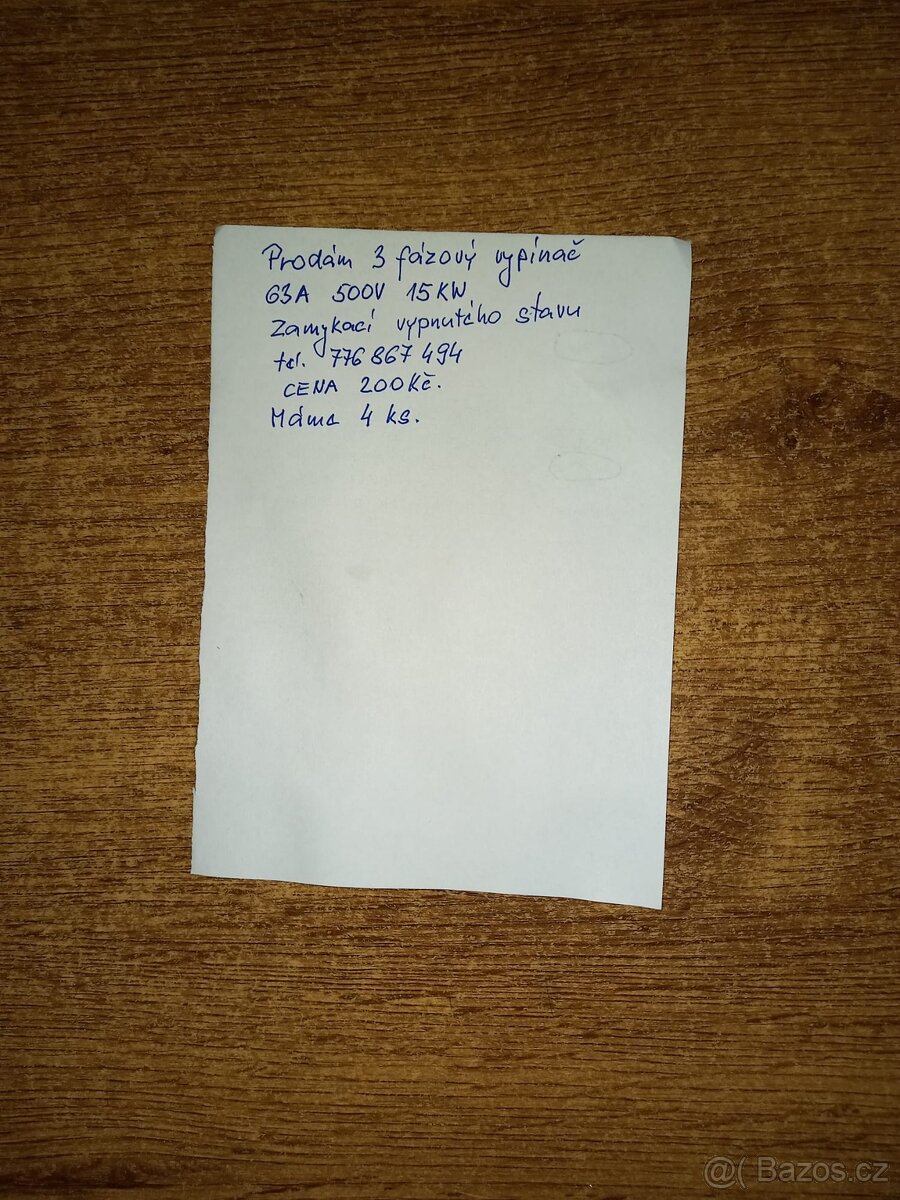 Prodám 3 fázový vypínač
63A 500V 15KW
Zamykací vypnutého stavu
tel. 776 867 494
CENA 200Kč.
Máme 4 ks.
@( Bazos.cz